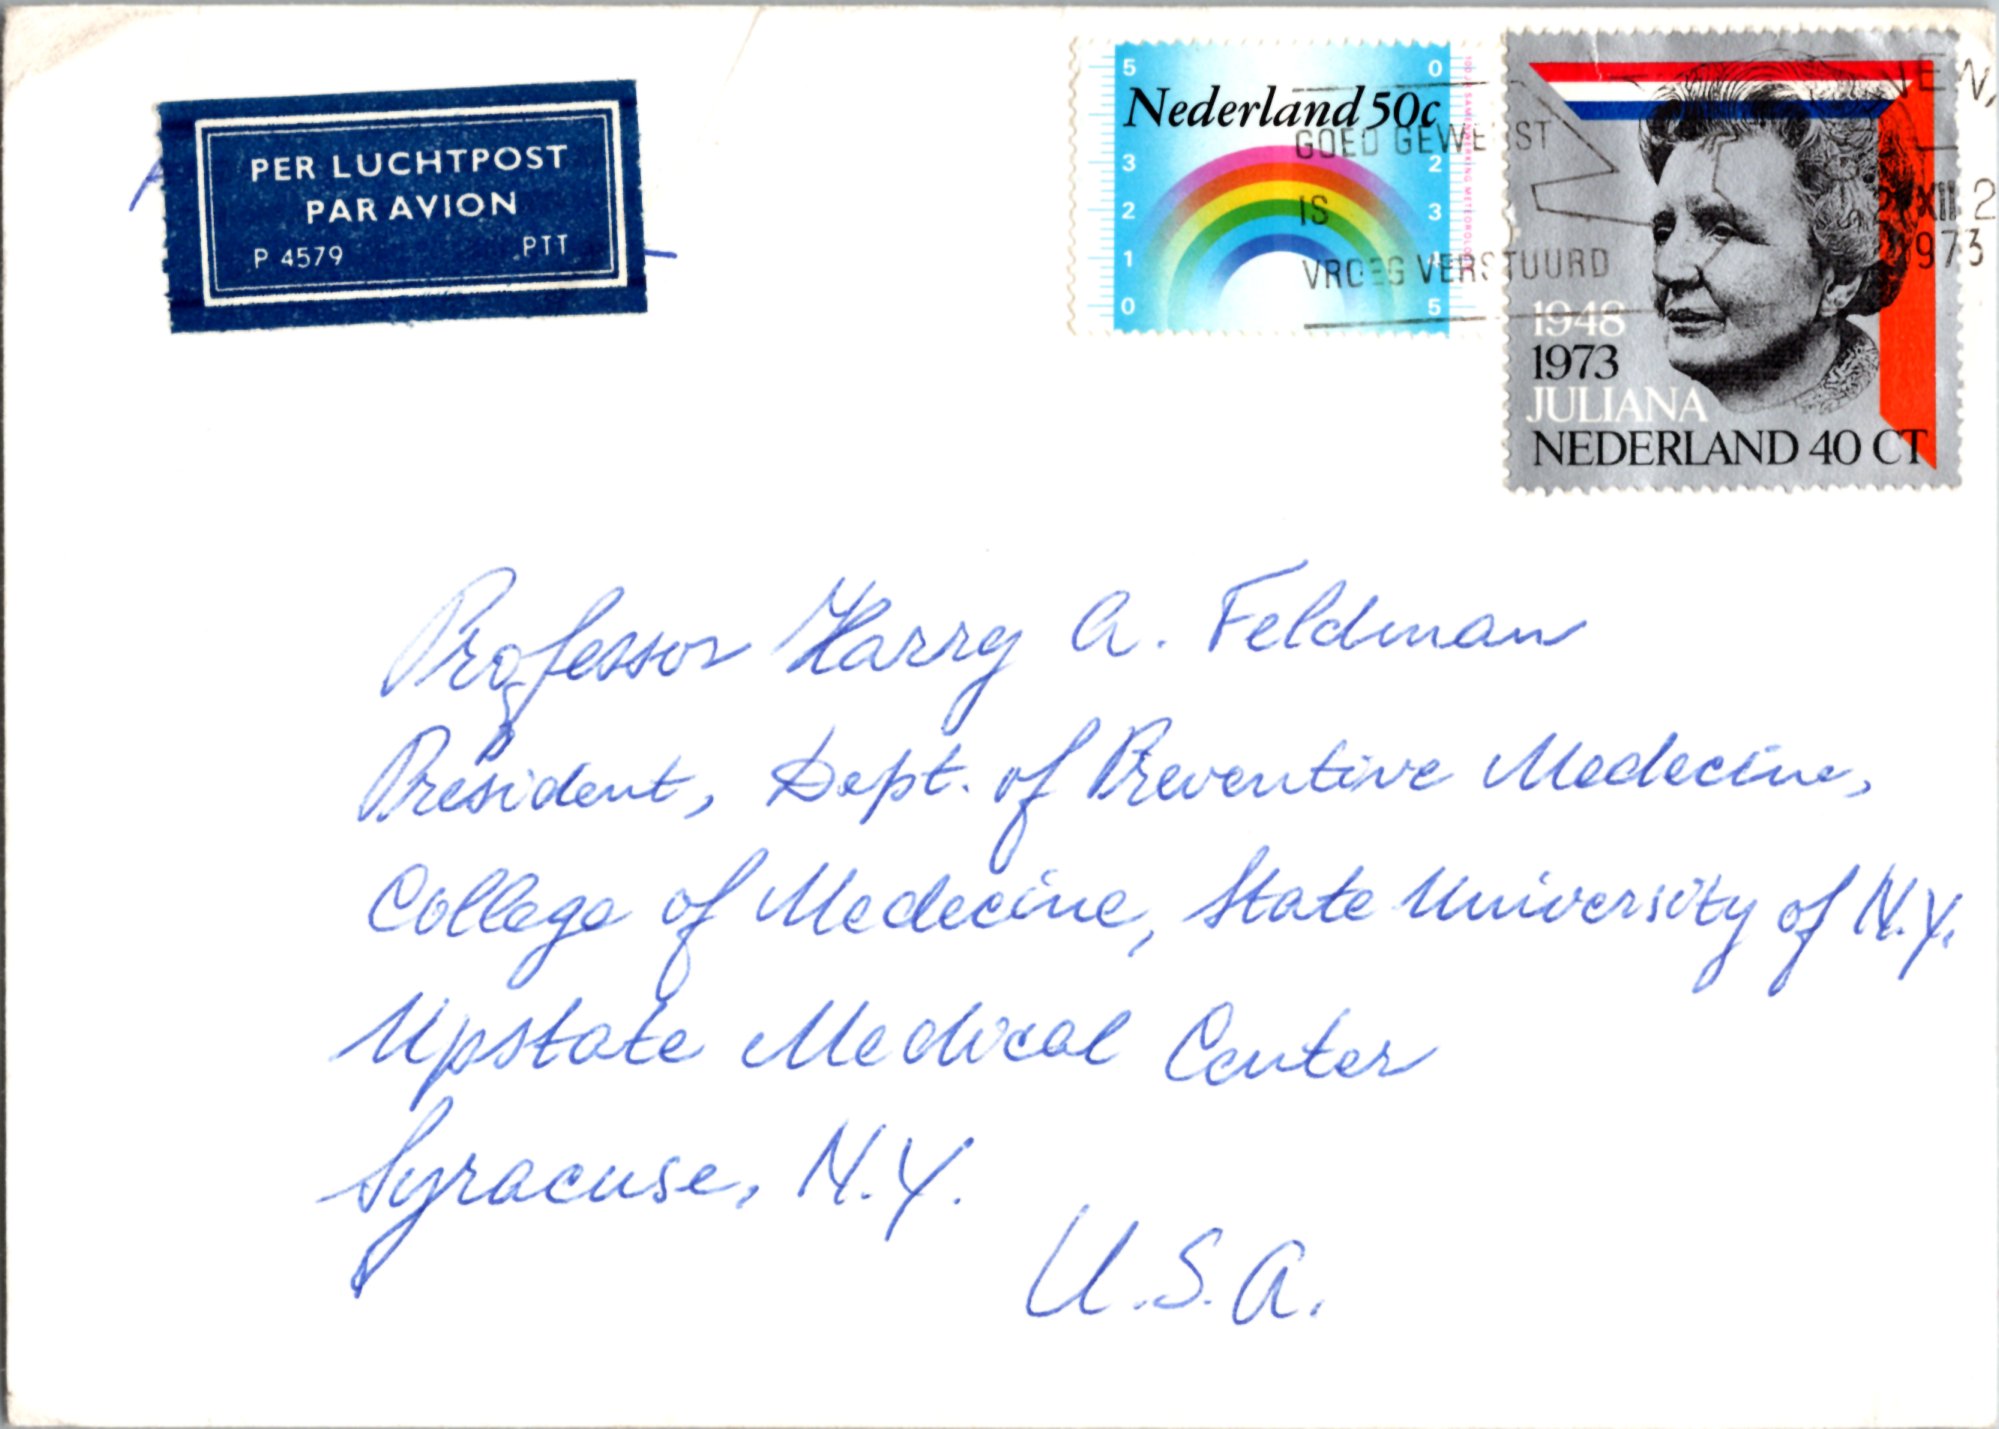 PER LUCHTPOST
PAR AVION
P 4579 PTT
5 0
Nederland 50c
3 2
2 3
1 4
0 5
100 JAAR SAMENWERKING METEOROLOGIE
GOED GEWENST
IS
VROEG VERSTUURD
XII
1973
1948
1973
JULIANA
NEDERLAND 40 CT
Professor Harry A. Feldman
President, Dept. of Preventive Medecine,
College of Medecine, State University of N.Y.
Upstate Medical Center
Syracuse, N.Y.
U.S.A.